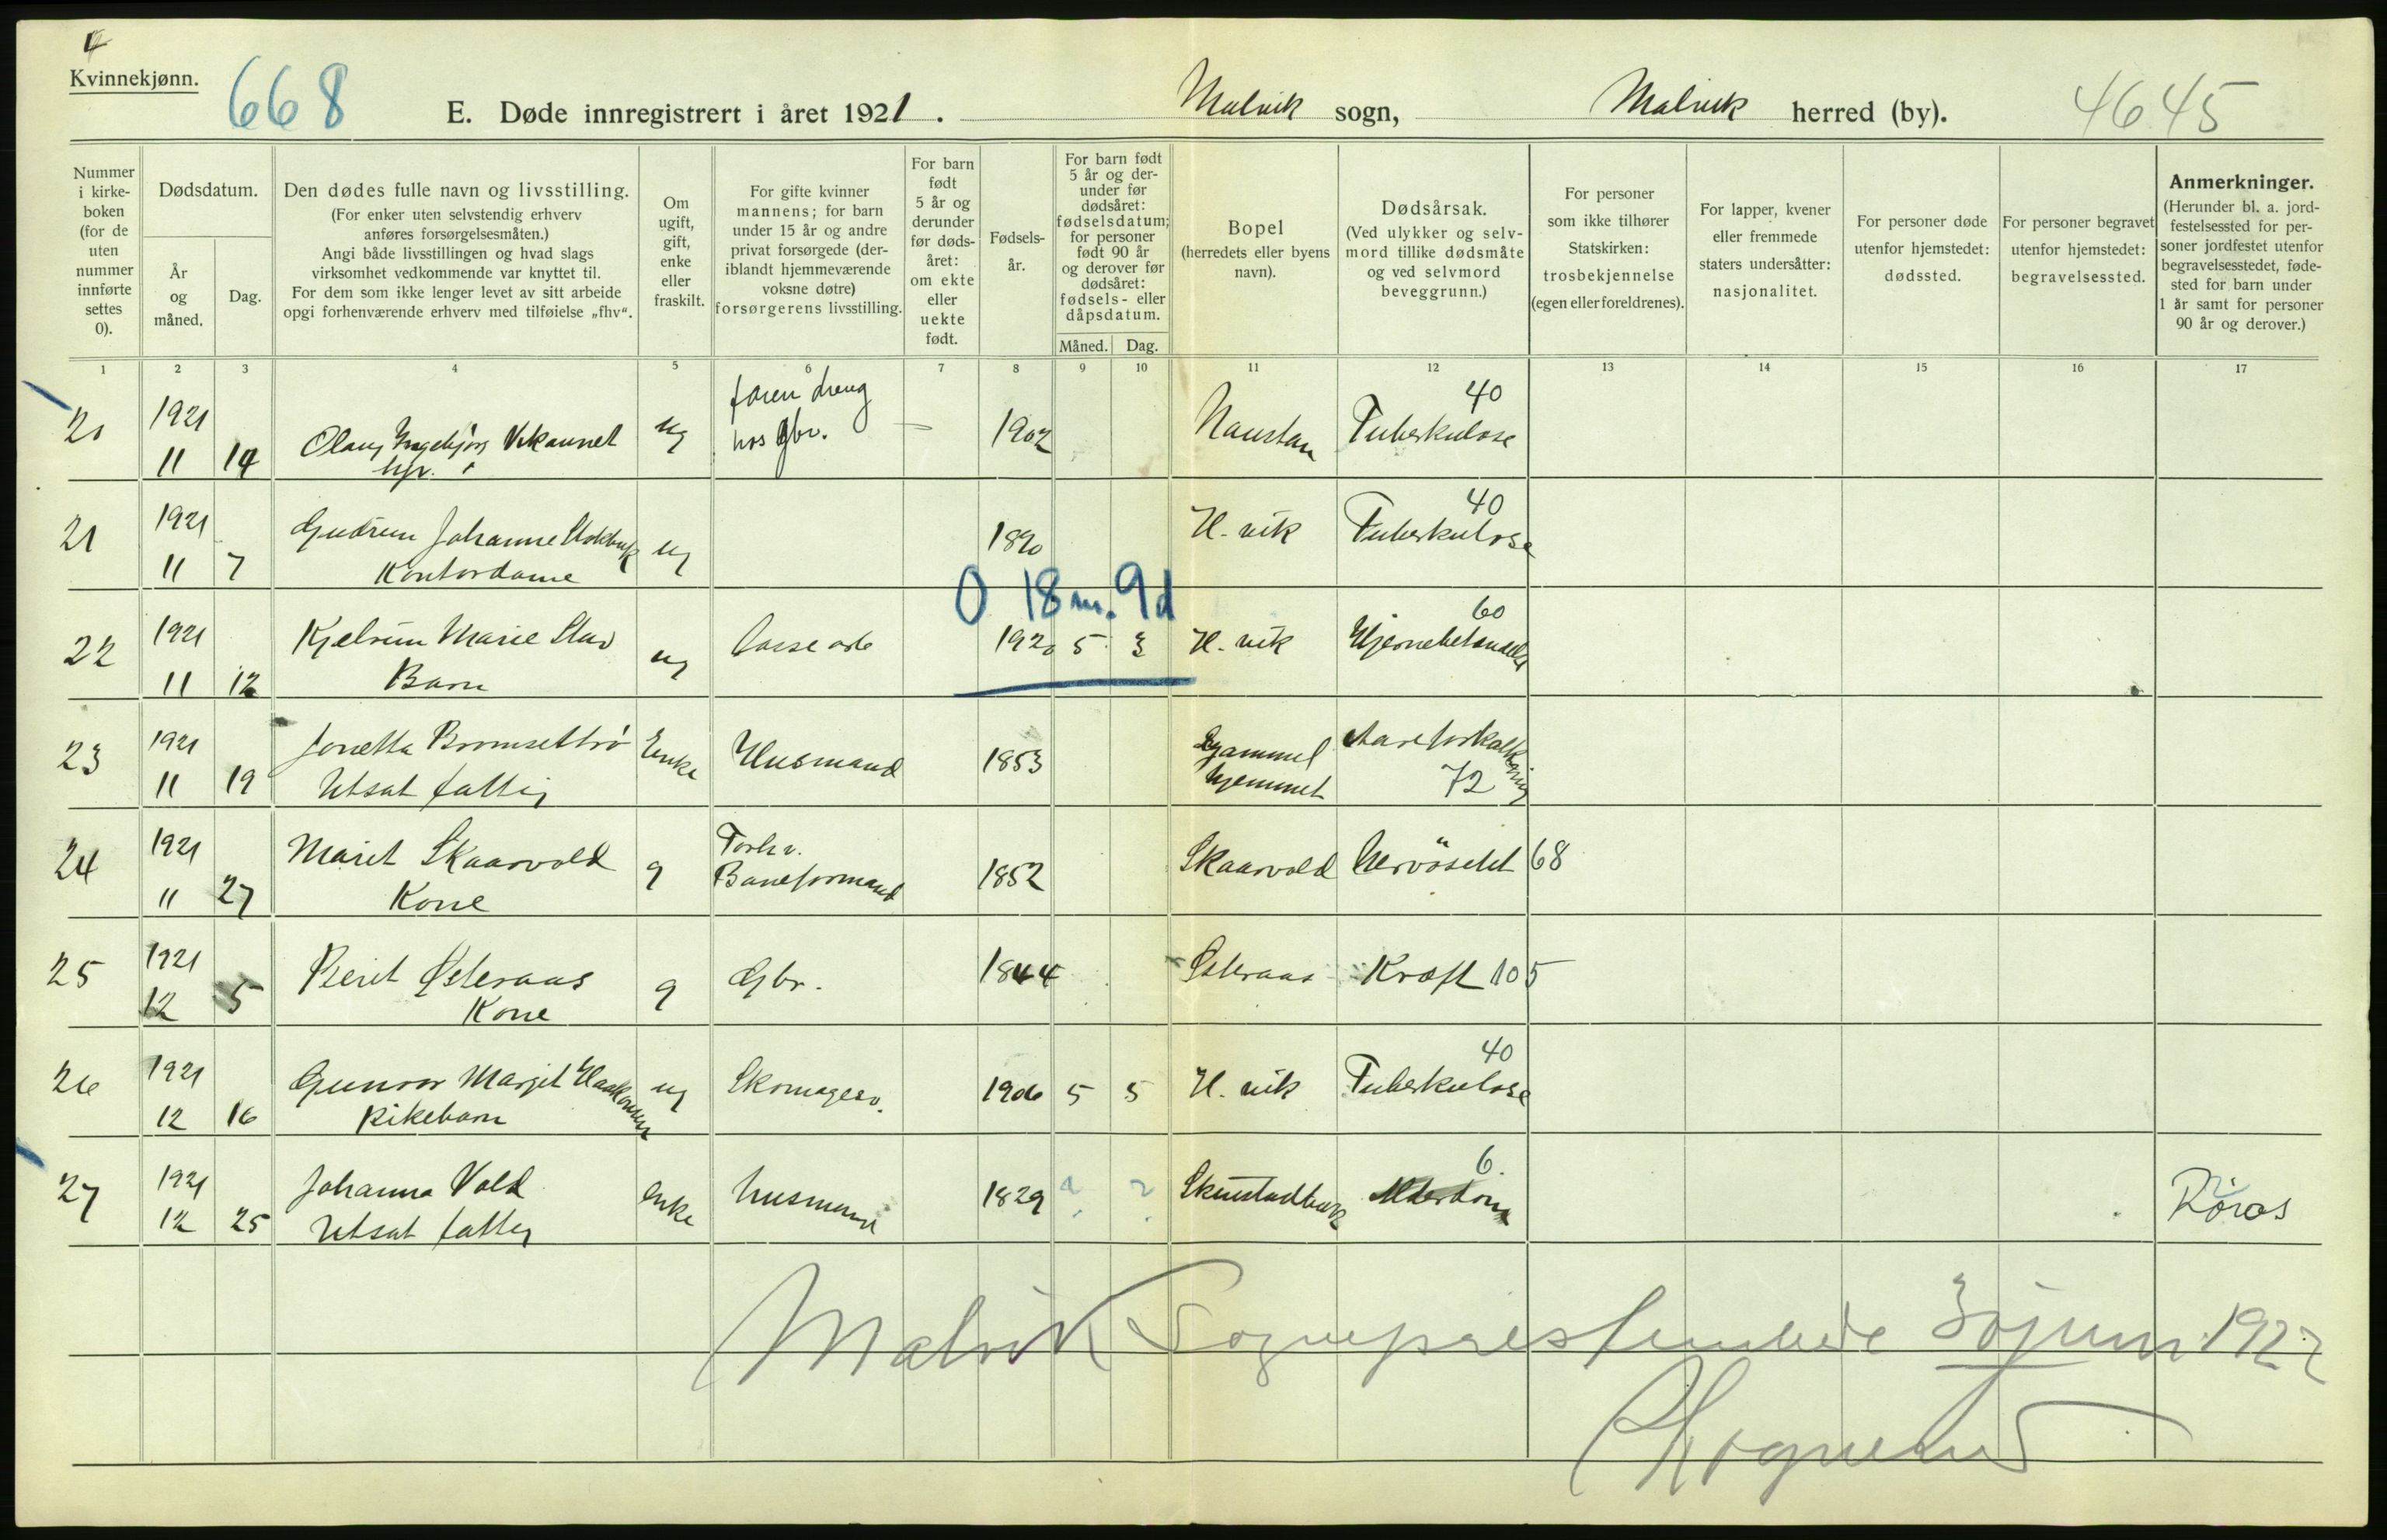 4
Kvinnekjønn.
668
E. Døde innregistrert i året 1921. Malvik sogn, Malvik herred (by). 4645
Nummer i kirke-boken (for de uten nummer innførte settes 0).
Dødsdatum.
År og måned.
Dag.
Den dødes fulle navn og livsstilling.
(For enker uten selvstendig erhverv anføres forsørgelsesmåten.)
Angi både livsstillingen og hvad slags virksomhet vedkommende var knyttet til.
For dem som ikke lenger levet av sitt arbeide opgi forhenværende erhverv med tilføielse „fhv“.
Om ugift, gift, enke eller fraskilt.
For gifte kvinner mannens; for barn under 15 år og andre privat forsørgede (der-iblandt hjemmeværende voksne døtre) forsørgerens livsstilling.
For barn født 5 år og derunder før døds-året: om ekte eller uekte født.
Fødsels-år.
For barn født 5 år og der-under før dødsåret: fødselsdatum; for personer født 90 år og derover før dødsåret: fødsels- eller dåpsdatum.
Måned. Dag.
Bopel (herredets eller byens navn).
Dødsårsak.
(Ved ulykker og selv-mord tillike dødsmåte og ved selvmord beveggrunn.)
For personer som ikke tilhører Statskirken: trosbekjennelse (egen eller foreldrenes).
For lapper, kvener eller fremmede staters undersåtter: nasjonalitet.
For personer døde utenfor hjemstedet: dødssted.
For personer begravet utenfor hjemstedet: begravelsessted.
Anmerkninger.
(Herunder bl. a. jord-festelsessted for per-soner jordfestet utenfor begravelsesstedet, føde-sted for barn under 1 år samt for personer 90 år og derover.)
1 2 3 4 5 6 7 8 9 10 11 12 13 14 15 16 17
20 1921 11 14 Olaug Ingebjørg Vikaunet ug hos gbr. — 1902 Naustan Tuberkulose 40
21 1921 11 7 Gudrun Johanne Kontordame ug 1890 H. vik Tuberkulose 40
0 18 m. 9d
22 1921 11 12 Kjelrun Marie Stav Barn ug 1920 5 3 H. vik Hjernebetændelse 60
23 1921 11 19 Jonetta Bromsettrø Utsat fattig Enke Husmand 1853 Gammel hjemmet Aareforkalkning 72
24 1921 11 27 Marit Skaarvold Kone g Forhv. Baneformand 1852 Skaarvold Nervøsitet 68
25 1921 12 5 Berit Østeraas Kone g Gbr. 1844 Østeraas Kræft 105
26 1921 12 16 Gunvor Margit Haakonsen Pikebarn ug Skomagerv. 1906 5 5 H. vik Tuberkulose 40
27 1921 12 25 Johanna Vold Utsat fattig Enke husmand 1829 ? ? Alderdom 6. Røros
Malvik Sogneprestembede 30 juni 1922